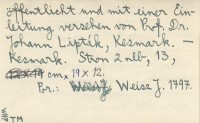 öffentlicht und mit einer Ein-
leitung versehen von Prof. Dr.
Johann Liptik, Kesmark. —
Kesmark. 8tron 2 nlb, 13,
cm × 19 × 12.
Pr.: Weisz J. 1797.
WHP TM